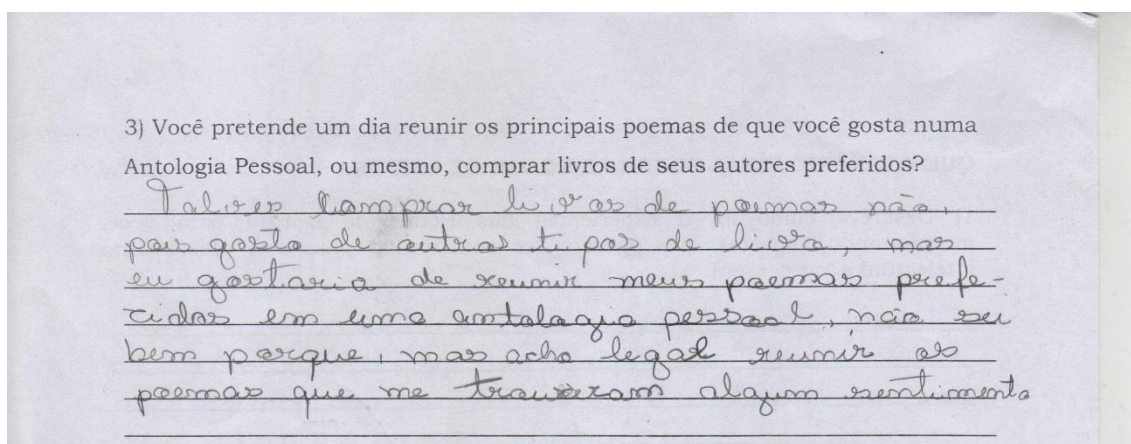 3) Você pretende um dia reunir os principais poemas de que você gosta numa
Antologia Pessoal, ou mesmo, comprar livros de seus autores preferidos?
Talvez comprar livros de poemas não,
pois gosto de outros tipos de livro, mas
eu gostaria de reunir meus poemas prefe-
ridos em uma antologia pessoal, não sei
bem porque, mas acho legal reunir os
poemas que me trouxeram algum sentimento